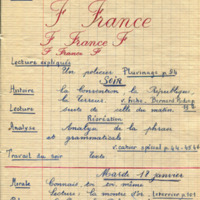 F France
F France F
F France F
Lecture expliquée
Un policier Plaisinage p 84
Soir
Histoire la Convention la République
la Terreur v. fiche
Lecture suite de celle du matin
Récréation
Analyse Analyse de la phrase
et grammaticale
v. cahier spécial p. 44-45
Travail du soir texte
Mardi 18 janvier
Morale Connais toi toi même
lecture: la montre d'or